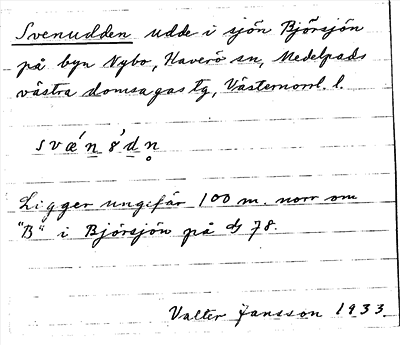 Svenudden udde i sjön Björsjön
på byn Nybo, Haverö sn, Medelpads
västra domsagas tg, Västernorrl. l.
svǽn 8'd n̥
Ligger ungefär 100 m. norr om
"B" i Björsjön på 78.
Valter Jansson 1933.